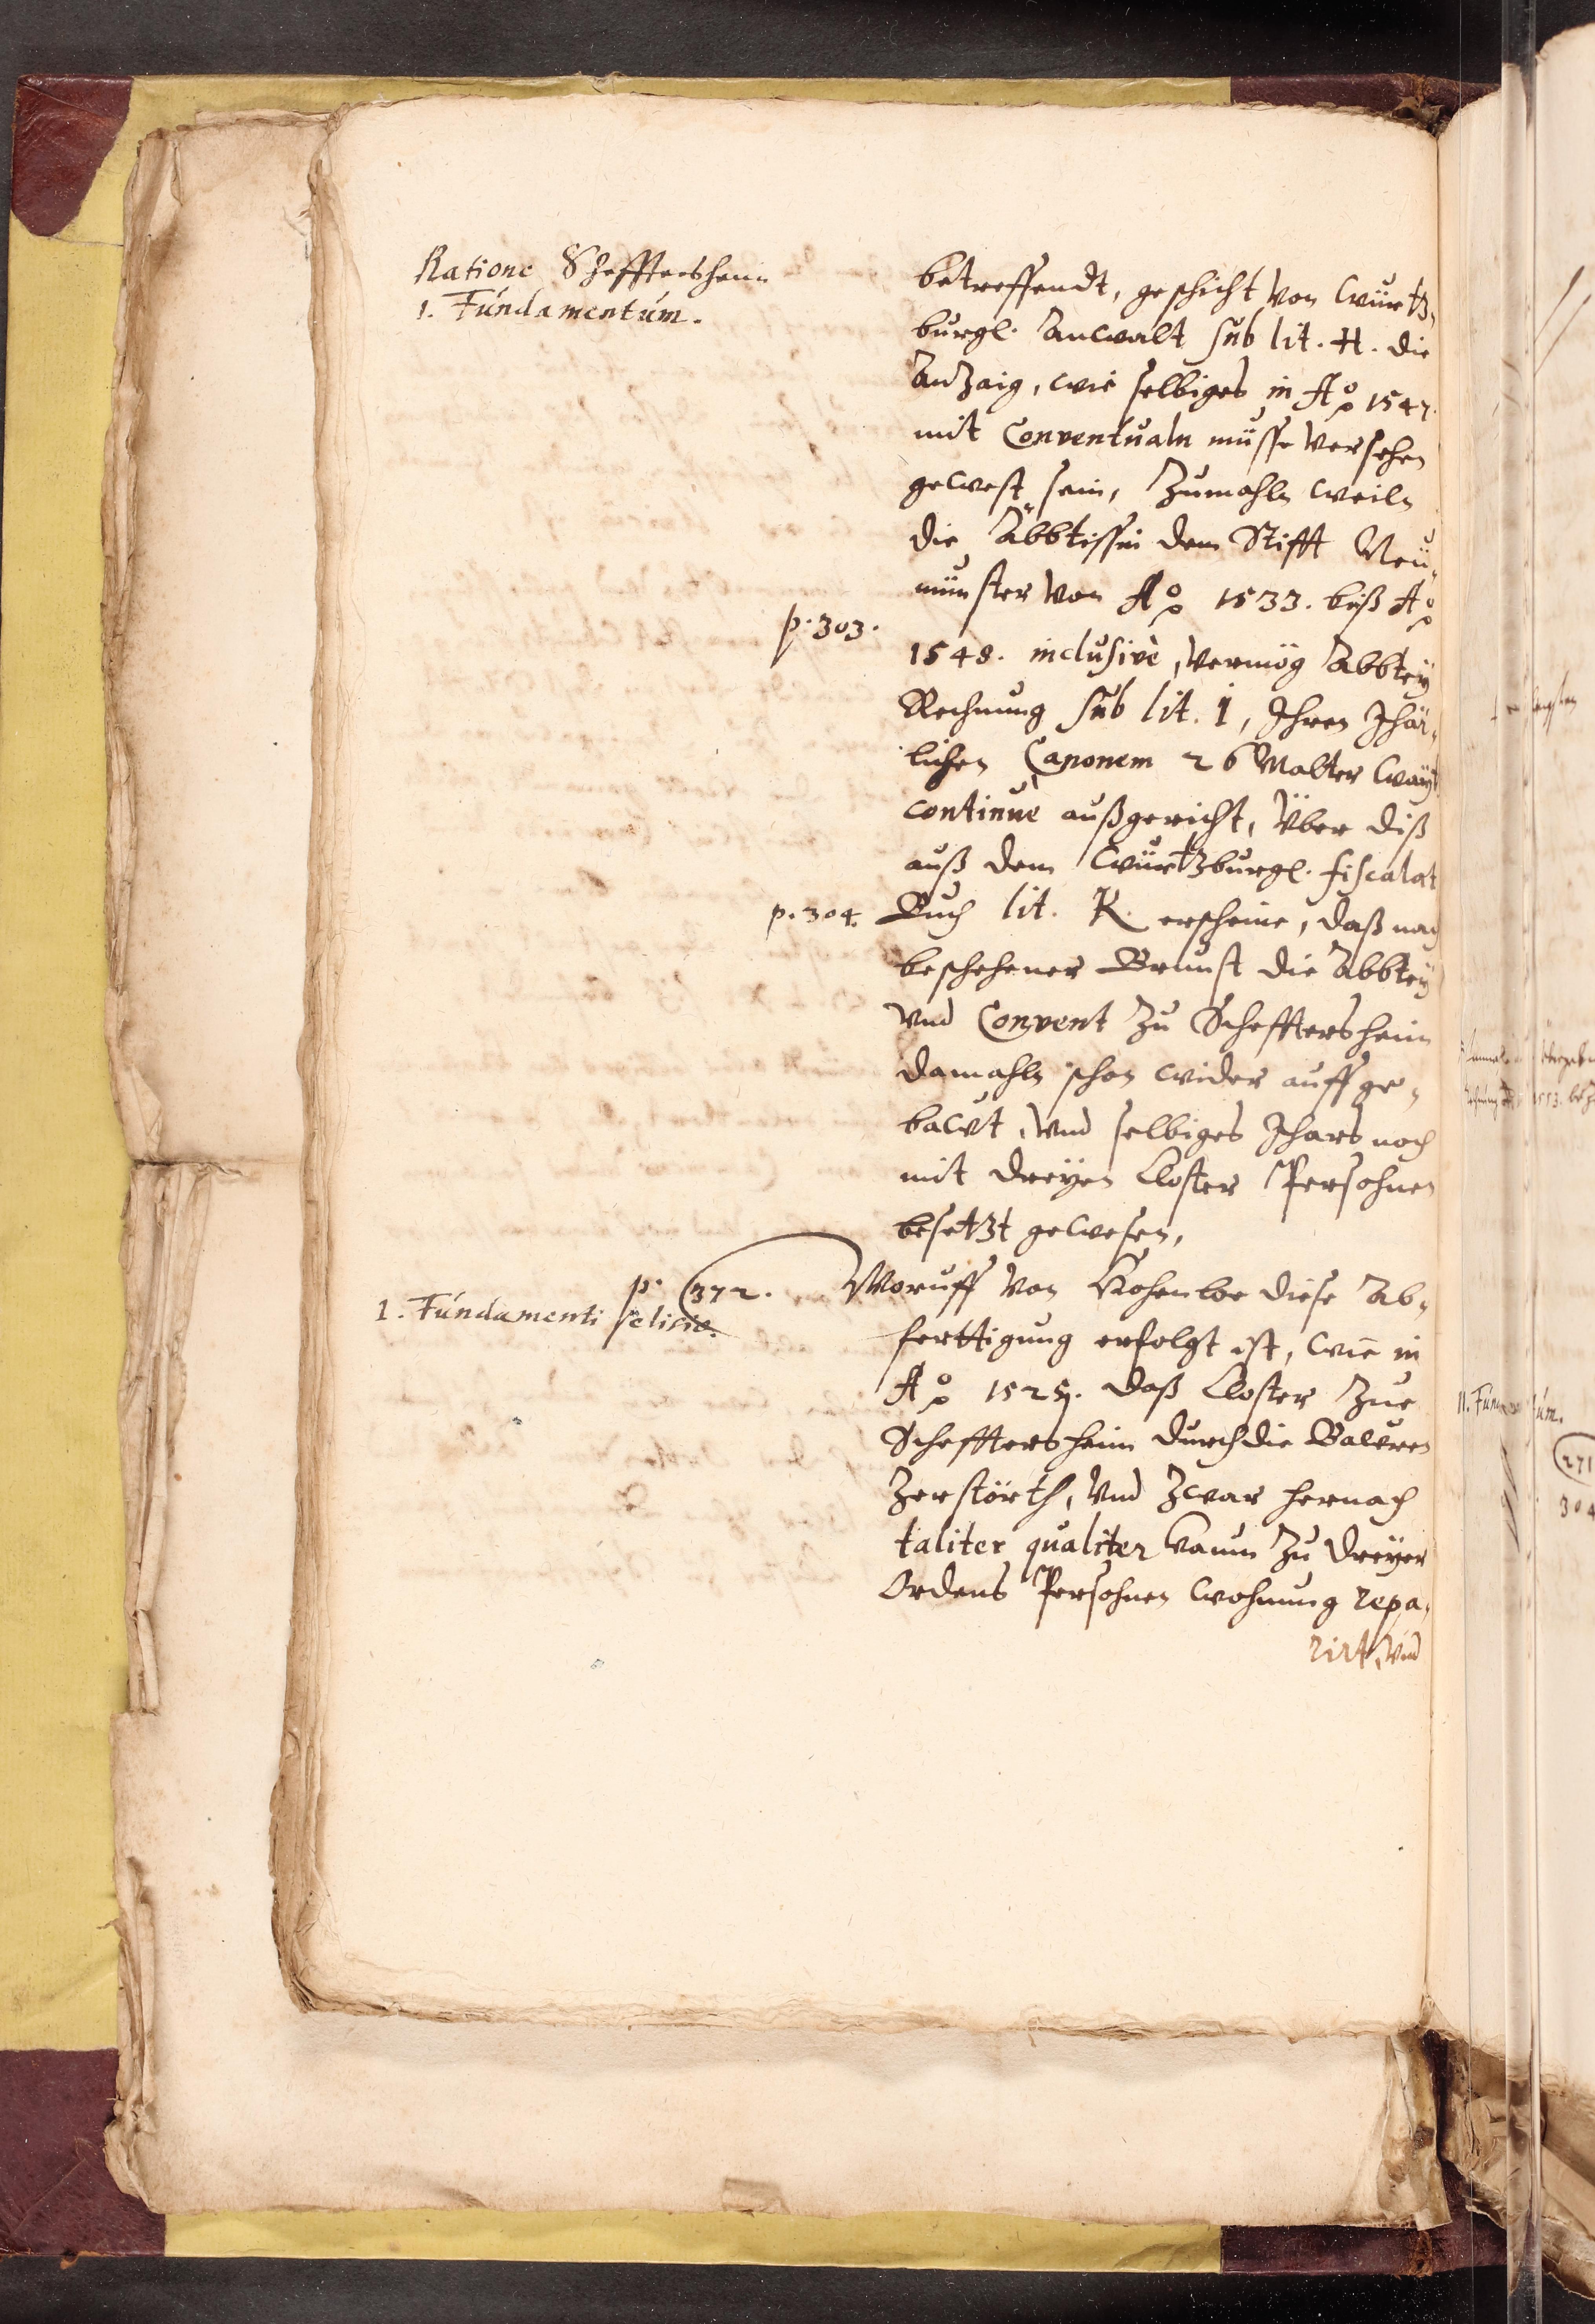 Ratione Scheffterſheim
1. Fundamentum.
betreffendt, geschicht von Würtz,
burgl. Anwalt sub lit. H. die
Anzaig, wie selbiges in Aō 1547.
mit Conventualn müsse versehen
gewest sein, Zumahln weiln
die Äbbtissin dem Stifft Neü,
münster von Aō 1533. biß Aō
p. 303.
1548. inclusivè, vermög Abbteÿ
Rechnung sub lit. I, Ihren Jhär,
lichen Canonem 26 Malter Waytz
continuè außgericht, Über diß
auß dem Würtzburgl. fiscalat
p. 304. Buch lit. K. erscheine, daß nach
beschehener Brunst die Abbteÿ
vnd Convent zu Scheffterßheim
damahln schon wider auff ge,
bawt, vnd selbiges Jhars noch
mit dreÿen Closter Persohnen
besetzt gewesen,
p. 372. Woruff von Hohenloe diese Ab,
1. Fundamenti elisio.
ferttigung erfolgt ist, wie in
Aō 1525. daß Closter zue
Scheffterßheim durch die Bawren
zerstörth, vnd zwar hernach
taliter qualiter kaum zu dreÿer
Ordens Persohnen wohnung repa,
rirt, vnd
II. Fundamentum.
271
304